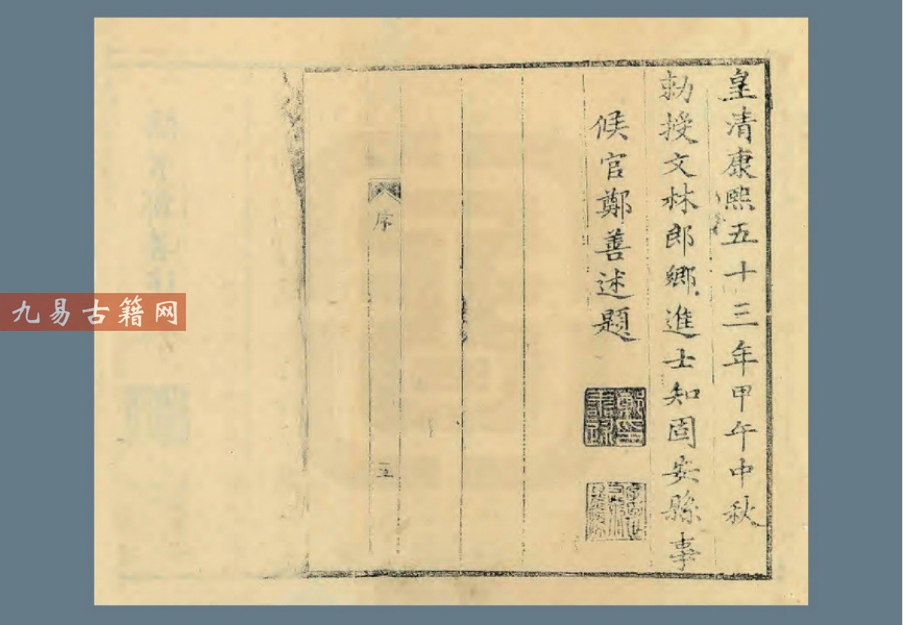 皇清康熙五十三年甲午中秋
勅授文林郎鄉進士知固安縣事
候官鄭善述題
序
五
九易古籍网